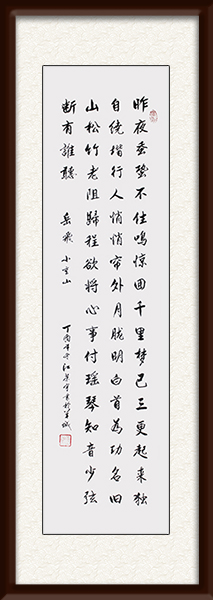 昨夜寒蛩不住鸣惊回千里梦已三更起来独
自绕阶行人悄悄帘外月胧明白首为功名旧
山松竹老阻归程欲将心事付瑶琴知音少弦
断有谁听 岳飞 小重山